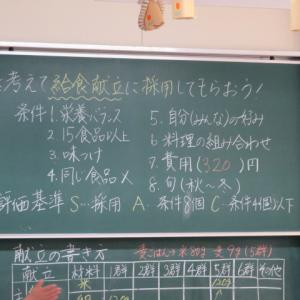 考えて給食献立に採用してもらおう!
条件 1.栄養バランス
2.15食品以上
3.味つけ
4.同じ食品✕
5.自分(みんな)の好み
6.料理の組み合わせ
7.費用(320)円
8.旬(秋〜冬)
評価基準 S…採用 A…条件8個 C…条件4個以下
献立の書き方 麦ごはん→米80g 麦9g(5群)
献立 材料 1群 2群 3群 4群 5群 6群 その他
米